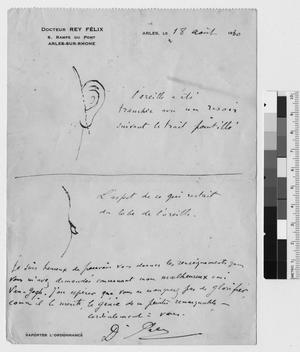 DOCTEUR REY FÉLIX
6, RAMPE DU PONT
ARLES-SUR-RHONE
ARLES, LE 18 août 1930
L'oreille a été
tranchée avec un rasoir
suivant le trait pointillé
L'aspect de ce qui restait
du lobe de l'oreille.
Je suis heureux de pouvoir vous donner les renseignements que
vous m'avez demandés concernant mon malheureux ami
Van-Gogh. J'ose espérer que vous ne manquerez pas de glorifier
comme il le mérite, le génie de ce peintre remarquable,
Cordialement à vous.
Dr Rey
RAPPORTER L'ORDONNANCE